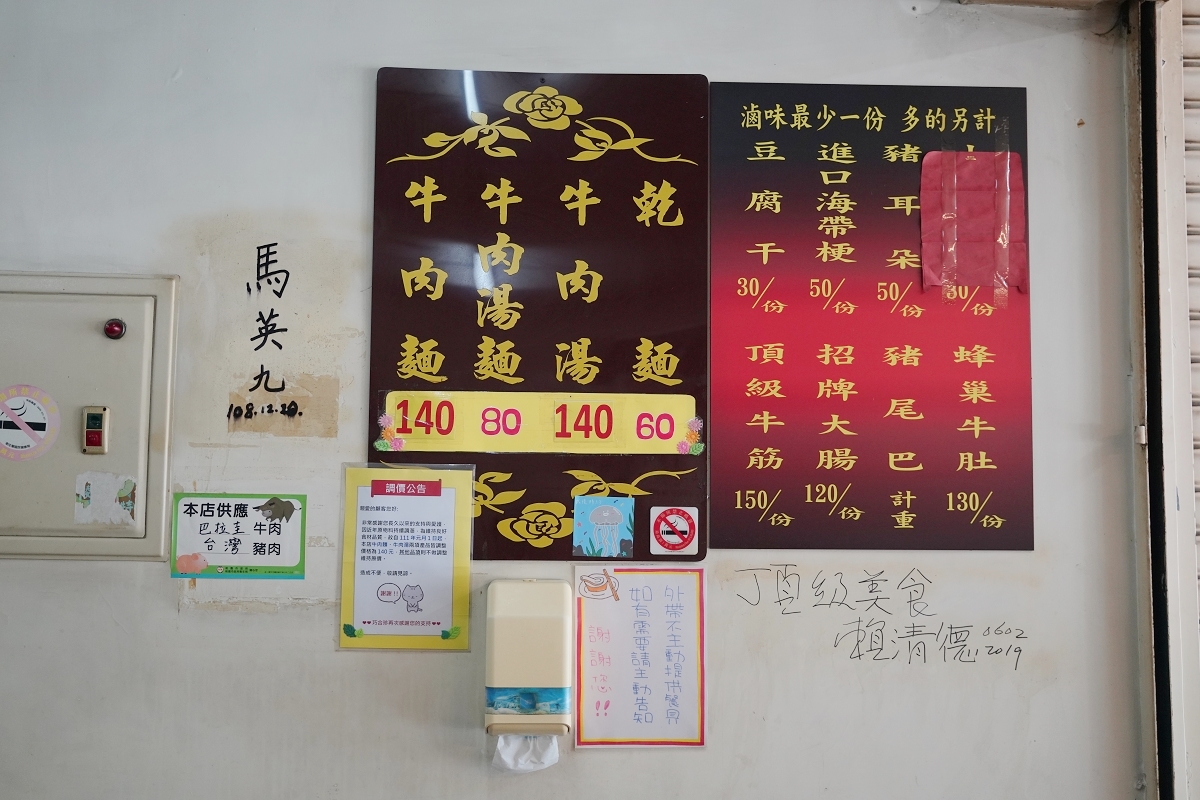 馬英九
108.12.20.
本店供應
巴拉圭 牛肉
台灣 豬肉
牛肉麵 140
牛肉湯麵 80
牛肉湯 140
乾麵 60
調價公告
親愛的顧客您好:
造成不便,敬請見諒。
謝謝!!
外帶不主動提供餐具
如有需要請主動告知
謝謝您!!
滷味最少一份 多的另計
豆腐干 30/份
進口海帶梗 50/份
豬耳朵 50/份
30/份
頂級牛筋 150/份
招牌大腸 120/份
豬尾巴 計重
蜂巢牛肚 130/份
頂級美食
賴清德 0602
2019